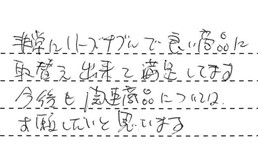 非常にリーズナブルで良い商品に
取替え出来て満足してます
今後も関連商品については
お願いしたいと思います